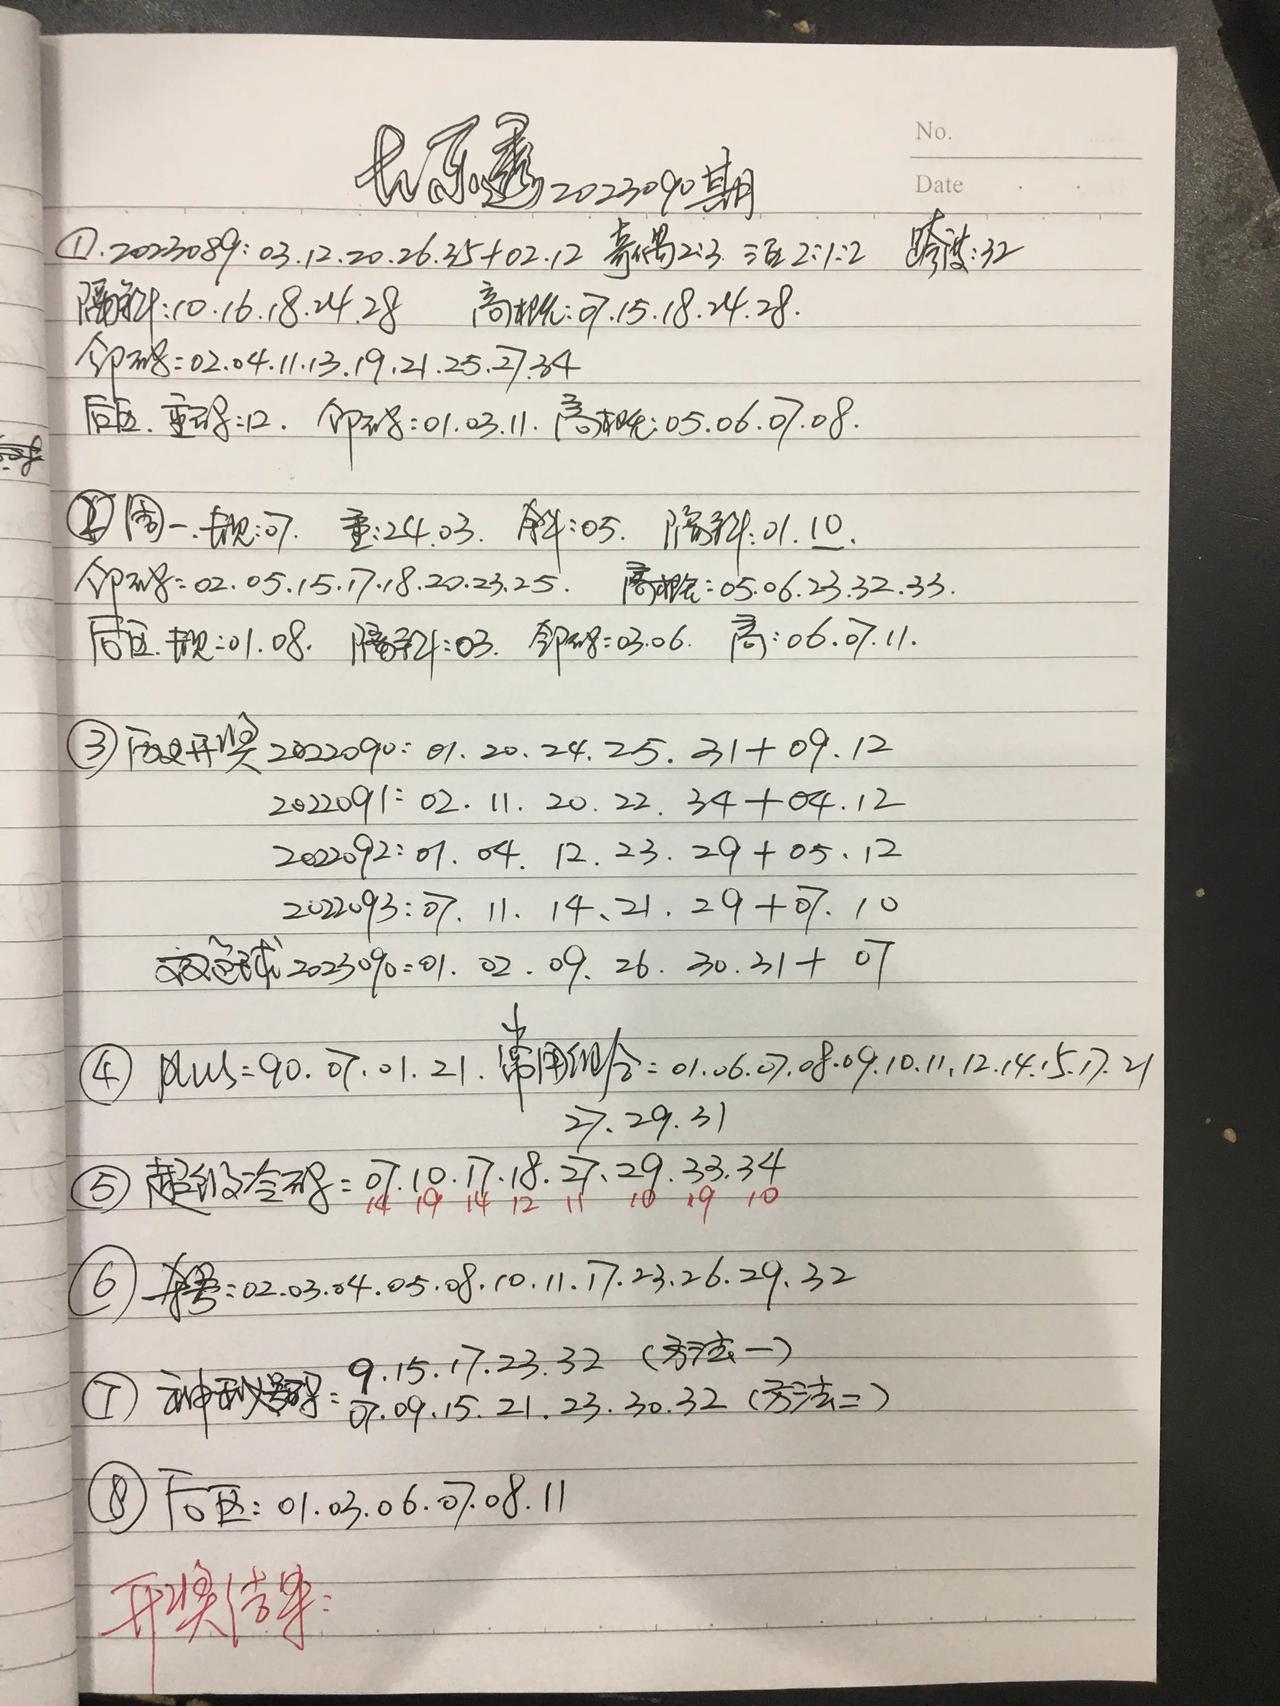 大乐透2023090期
No.
Date
①.2023089:03.12.20.26.35+02.12 奇偶2:3 三区2:1:2 跨度:32
隔斜:10.16.18.24.28 高概死:07.15.18.24.28.
邻码:02.04.11.13.19.21.25.27.34
后区.重码:12. 邻码:01.03.11.高概死:05.06.07.08.
② 周一.规:07. 重:24.03. 斜:05. 隔斜:01.10.
邻码:02.05.15.17.18.20.23.25. 高概:05.06.23.32.33.
后区.规:01.08. 隔斜:03. 邻码:03.06. 高:06.07.11.
③ 历史开奖 2022090:01.20.24.25.31+09.12
2022091:02.11.20.22.34+04.12
2022092:01.04.12.23.29+05.12
2022093:07.11.14.21.29+07.10
双色球 2023090:01.02.09.26.30.31+07
④ plus=90.07.01.21.常用组合=01.06.07.08.09.10.11.12.14.15.17.21
27.29.31
⑤ 超级冷码=07.10.17.18.27.29.33.34
14 19 14 12 11 10 19 10
⑥ 号:02.03.04.05.08.10.11.17.23.26.29.32
9.15.17.23.32 (方法一)
⑦ 神秘号码:07.09.15.21.23.30.32 (方法二)
⑧ 后区:01.03.06.07.08.11
开奖结果: